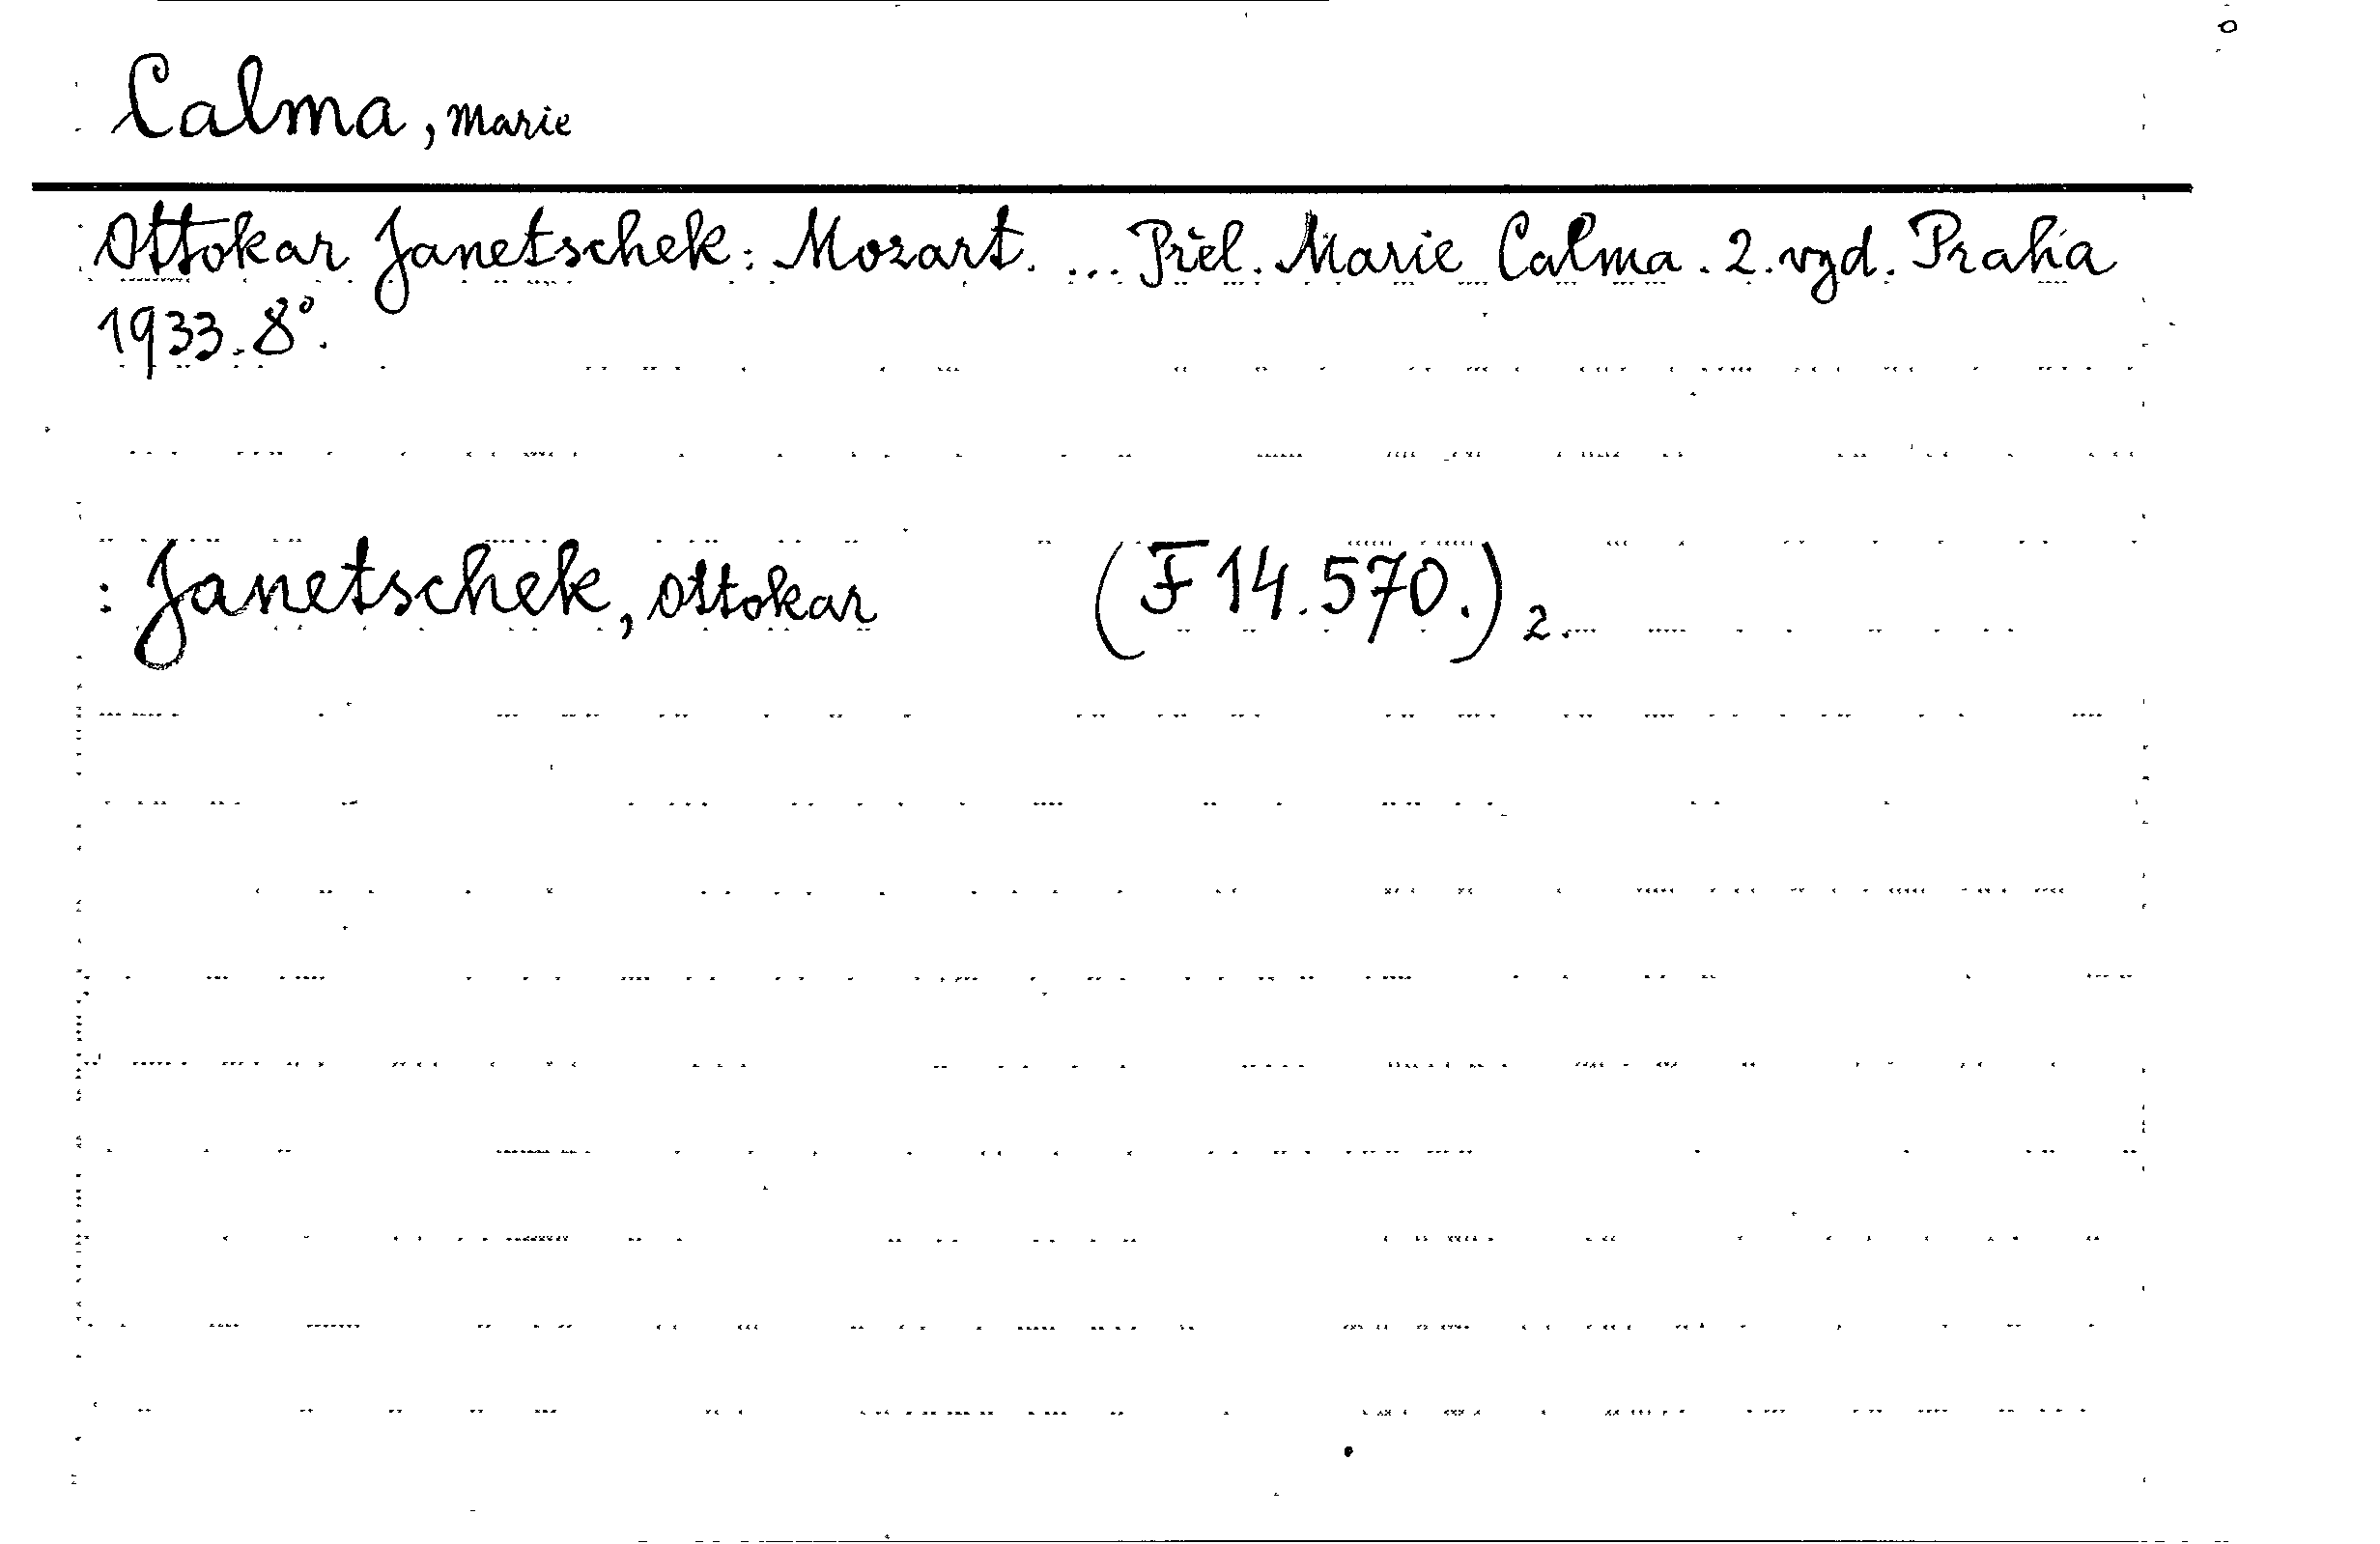 Calma, Marie
Ottokar Janetschek: Mozart. ... Přel. Marie Calma. 2. vyd. Praha
1933. 8°.
: Janetschek, Ottokar (F 14.570.) 2.